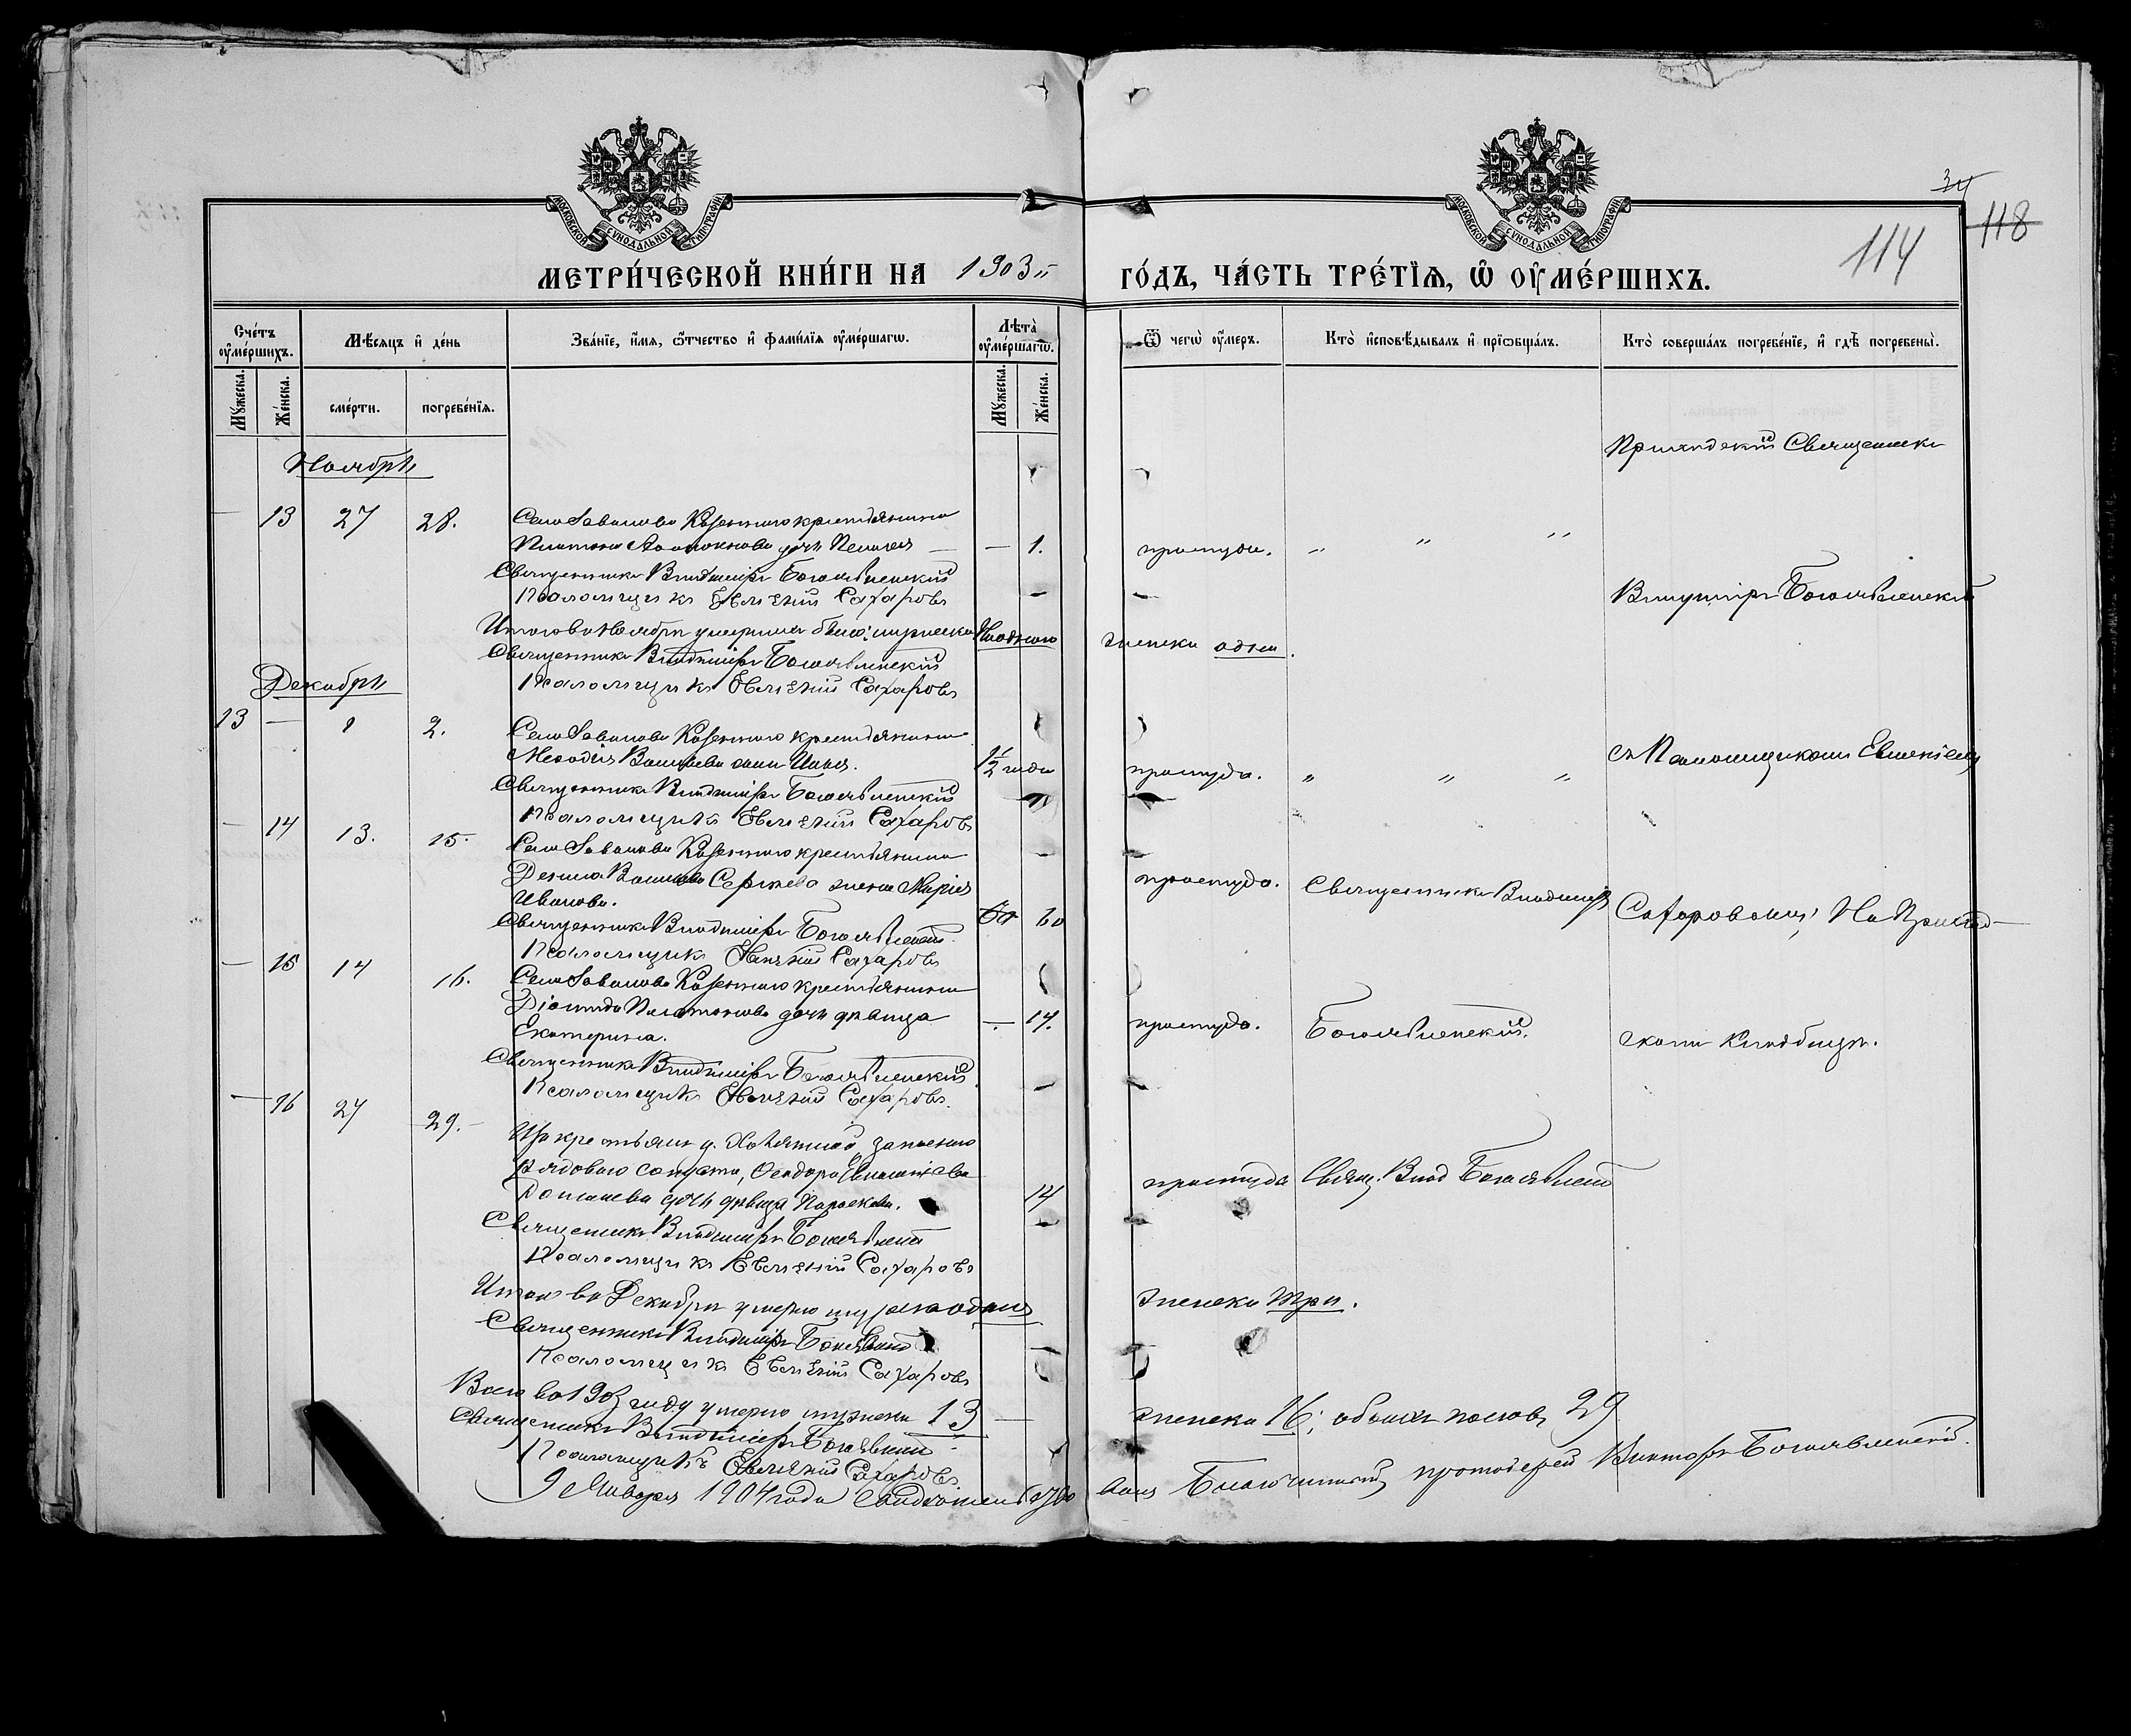 МОСКОВСКОЙ СУНОДАЛЬНОЙ ТИПОГРАФІИ
МОСКОВСКОЙ СУНОДАЛЬНОЙ ТИПОГРАФІИ
34
118
114
МЕТРИ́ЧЕСКОЙ КНИ́ГИ НА 1903 ГО́ДЪ, ЧА́СТЬ ТРЕ́ТЇѦ, Ѿ ОУ҆МЕ́РШИХЪ.
Сче́тъ оу҆ме́ршихъ.
Мѣ́сяцъ и҆ де́нь
Зва́нїе, и҆́мѧ, ѻ҆́тчество и҆ фами́лїѧ оу҆ме́ршагѡ.
Лѣта̀ оу҆ме́ршагѡ.
Ѿ чегѡ̀ оу҆́меръ.
Кто̀ и҆сповѣ́дывалъ и҆ прїѡбща́лъ.
Кто̀ соверша́лъ погребе́нїе, и҆ гдѣ̀ погребены̀.
Мꙋ́жеска.
Же́нска.
сме́рти.
погребе́нїѧ.
Мꙋ́жеска.
Же́нска.
Приходскій Священникъ
Ноябрь
— 13 27 28. Села Казеннаго крестьянина
Платона дочь Пелагея — — 1. простуда. „ „ „
Священникъ Владиміръ Богоявленскій
Псаломщикъ Евгеній Сахаровъ
Владиміръ Богоявленскій
Итого въ Ноябрѣ умершихъ было: мужеска ни одного женска одна.
Священникъ Владиміръ Богоявленскій
Псаломщикъ Евгеній Сахаровъ
Декабрь
13 — 1 2. Села Казеннаго крестьянина
Меѳодія Васильева сынъ Илья. 1½ года простуда. „ „ „
съ Псаломщикомъ Евгеніемъ
Священникъ Владиміръ Богоявленскій
Псаломщикъ Евгеній Сахаровъ
— 14 13. 15. Села Казеннаго крестьянина
Васильева Сергѣева жена Марія
Иванова. 60 60 простуда. Священникъ Владиміръ
Сахаровымъ; На Приход-
Священникъ Владиміръ Богоявленскій
Псаломщикъ Евгеній Сахаровъ
— 15 14 16. Села Казеннаго крестьянина
Платонова дочь дѣвица
Екатерина. — 14. простуда. Богоявленскій.
скомъ кладбищѣ.
Священникъ Владиміръ Богоявленскій
Псаломщикъ Евгеній Сахаровъ.
— 16 27 29. Изъ крестьянъ д. запаснаго
рядоваго солдата, Ѳеодора
дочь дѣвица Параскева. 14 простуда Свящ. Влад Богоявленскій
Священникъ Владиміръ Богоявленскій
Псаломщикъ Евгеній Сахаровъ
Итого въ Декабрѣ умерло муж. одинъ женска три.
Священникъ Владиміръ Богоявленскій
Псаломщикъ Евгеній Сахаровъ
Всего въ 1903 году умерло мужска 13 — женска 16; обоихъ половъ 29
Священникъ Владиміръ Богоявленскій
Псаломщикъ Евгеній Сахаровъ
9 Января 1904 года Благочинный протоіерей Викторъ Богоявленскій.